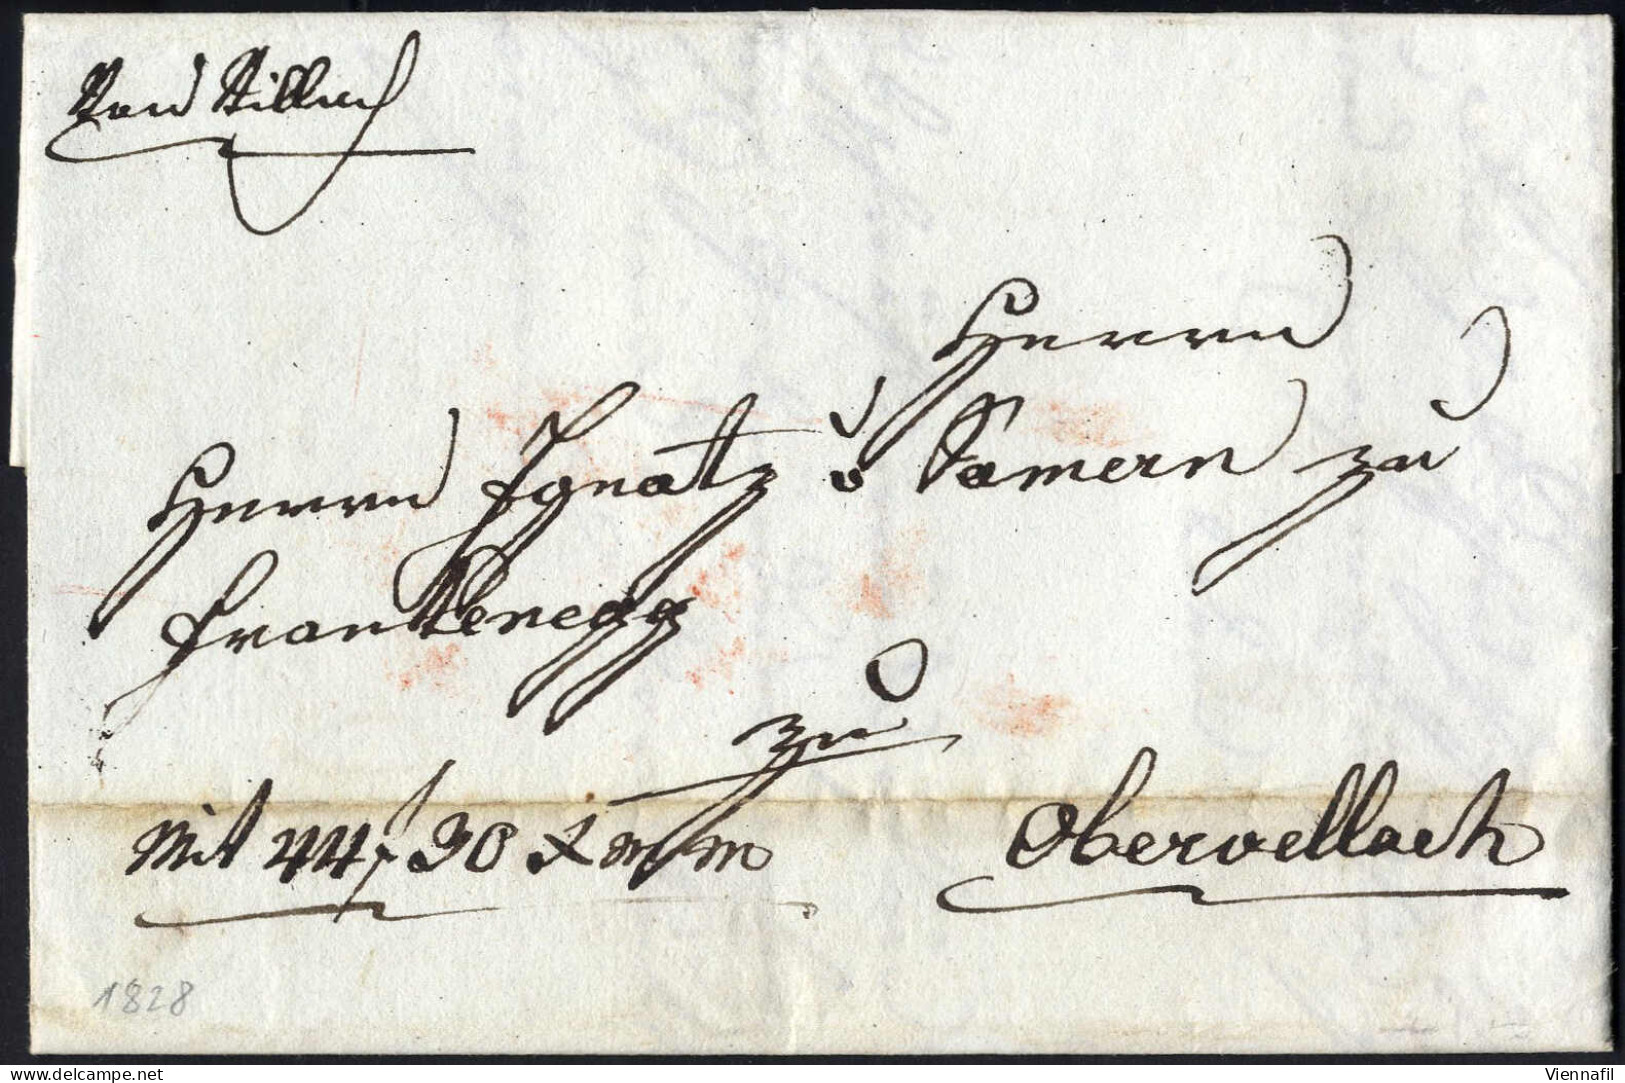 Von Villach
Herrn
Herrn Ignatz v Samern zu
Frankenegg
zu
Mit 44 f 30 x
Obervellach
1828
www.delcampe.net
Viennafil